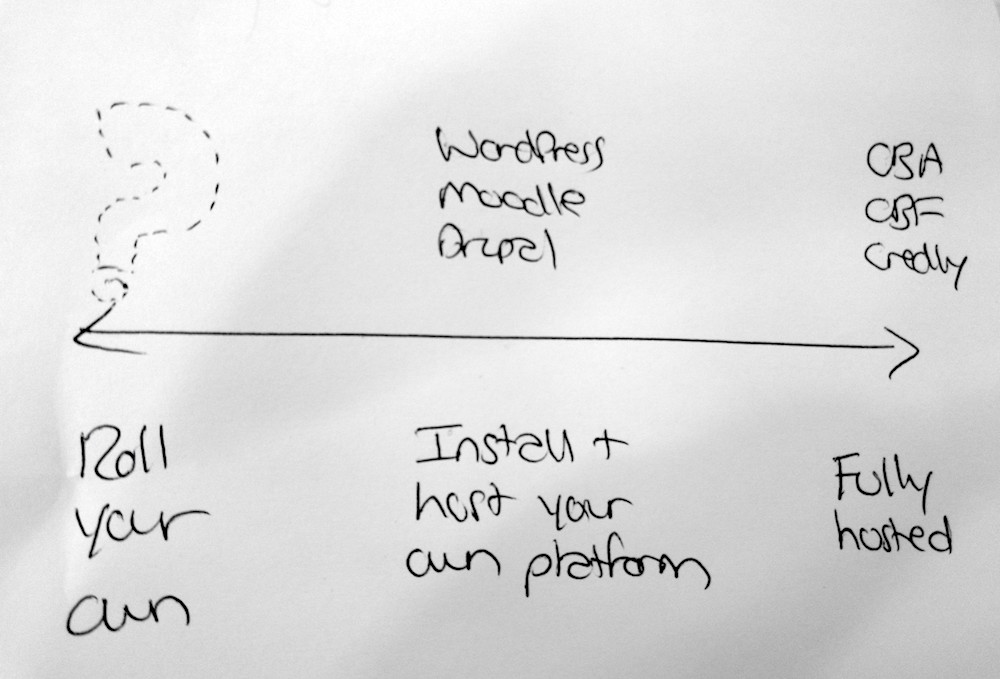 ?
WordPress
Moodle
Drupal
CBA
CBF
Credly
Roll
your
own
Install +
host your
own platform
Fully
hosted